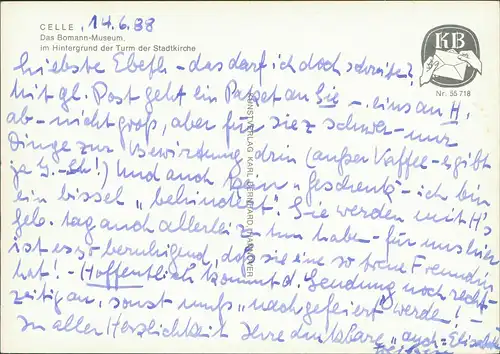 CELLE, 14.6.88
Das Bomann-Museum,
im Hintergrund der Turm der Stadtkirche
KB
Nr. 55 718
KUNSTVERLAG KARL BERNHARD HANNOVER
Liebste - das darf ich doch schreiben?
Mit gl. Post geht ein Paket an Sie - eins an H.
ab - nicht groß, aber für sie z schwer - nur
Dinge zur Bewirtung drin (außer Kaffee - es gibt
ja !) Und auch kein "Geschenk" - ich bin
ein bissel "behindert". Sie werden mit H's
geb. tag auch allerlei z. tun habe - für uns hier
ist es so beruhigend, daß sie eine so treue Freundin
hat! - Hoffentlich kommt d. Sendung noch recht-
zeitig an, sonst muß "nach gefeiert" werde! -
In aller Herzlichkeit Ihre dankbare "auch"= Elisabeth